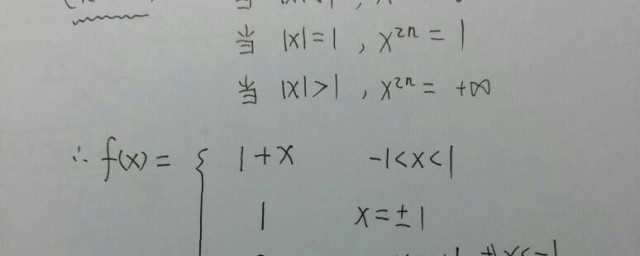 当 |x|=1 , x²ⁿ = 1
当 |x|>1 , x²ⁿ = +∞
∴ f(x) = { 1+x -1<x<1
1 x=±1